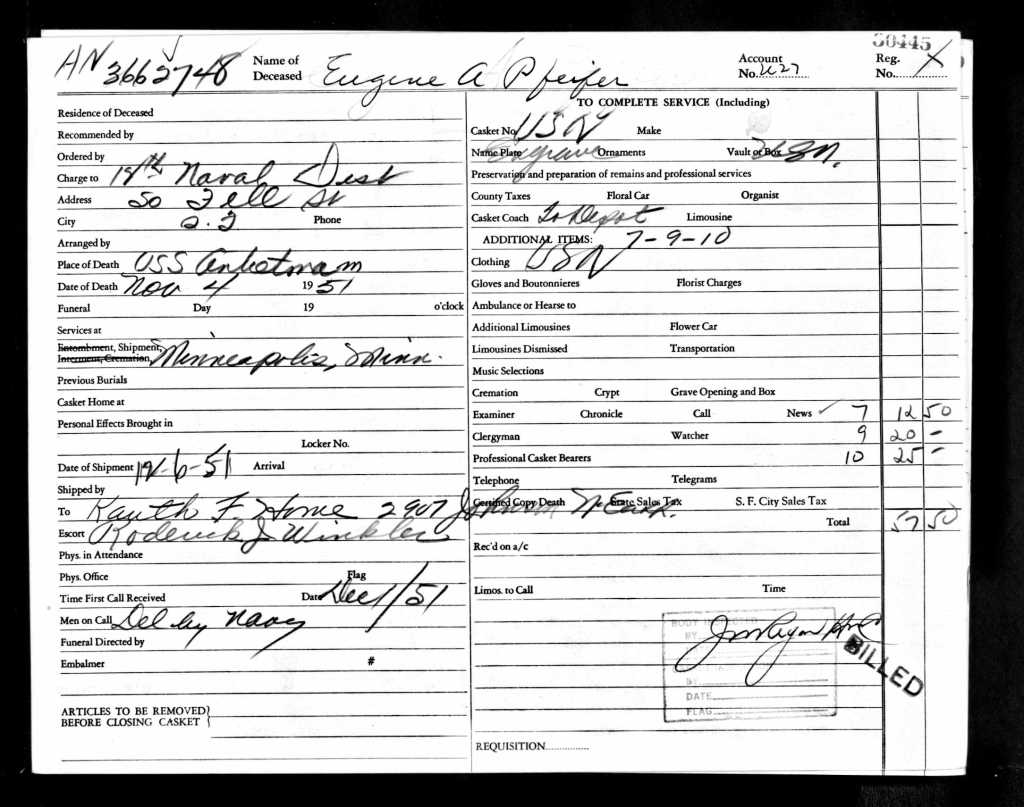 30445
AN 3662748 Name of Deceased Eugene A Pfeifer Account No. 2627 Reg. No. X
Residence of Deceased
Recommended by
Ordered by
Charge to 12th Naval Dist
Address 50 Fell St
City S.F. Phone
Arranged by
Place of Death USS
Date of Death Nov 4 1951
Funeral Day 19 o'clock
Services at
Entombment, Shipment, Interment, Cremation, Minneapolis, Minn.
Previous Burials
Casket Home at
Personal Effects Brought in
Locker No.
Date of Shipment 12-6-51 Arrival
Shipped by
To Kauth F. Home 2907
Escort Roderick J Winkler
Phys. in Attendance
Phys. Office Flag
Time First Call Received Date Dec 1/51
Men on Call Del by Navy
Funeral Directed by
Embalmer #
ARTICLES TO BE REMOVED BEFORE CLOSING CASKET
TO COMPLETE SERVICE (Including)
Casket No. USN Make
Name Plate Engrave Ornaments Vault or Box
Preservation and preparation of remains and professional services
County Taxes Floral Car Organist
Casket Coach To Depot Limousine
ADDITIONAL ITEMS: 7-9-10
Clothing USN
Gloves and Boutonnieres Florist Charges
Ambulance or Hearse to
Additional Limousines Flower Car
Limousines Dismissed Transportation
Music Selections
Cremation Crypt Grave Opening and Box
Examiner Chronicle Call News 7 12 50
Clergyman Watcher 9 20 -
Professional Casket Bearers 10 25 -
Telephone Telegrams
Certified Copy Death State Sales Tax S. F. City Sales Tax
Total 57 50
Rec'd on a/c
Limos. to Call Time
BODY INSPECTED
BY
BILLED
BY
DATE
FLAG
REQUISITION